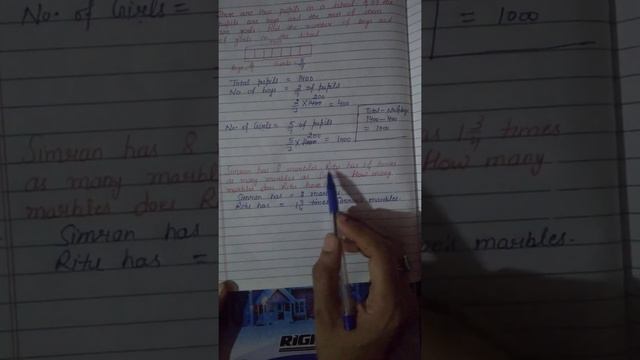 There are 1400 pupils in a school. 2/7 of the
pupils are boys and the rest of them
are girls. Find the number of boys and
girls in the school
Boys 2/7 Girls = 5/7
Total pupils = 1400
No. of boys = 2/7 of pupils
2/7 × 1400 200 = 400
No. of Girls = 5/7 of pupils
5/7 × 1400 200 = 1000
Total - No. of boys
1400 - 400
= 1000
Simran has 8 marbles. Ritu has 1 3/4 times
as many marbles as How many
marbles does Ritu have
Simran has = 8 marbles
Ritu has = 1 3/4 times Simran's marbles.
RIGH
No. of Girls =
= 1000
Simran has 8
as many marb
marbles does R
Simran has
Ritu has =
1 3/4 times
How many
marbles.